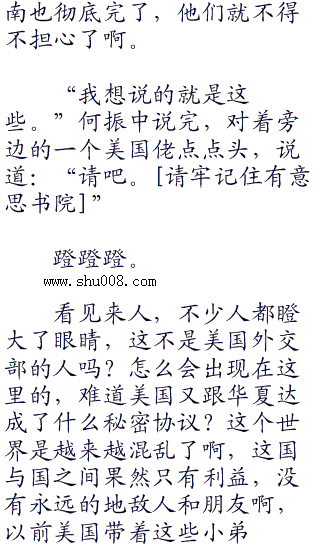 南也彻底完了，他们就不得
不担心了啊。
“我想说的就是这
些。”何振中说完，对着旁
边的一个美国佬点点头，说
道：“请吧。[请牢记住有意
思书院]”
蹬蹬蹬。
www.shu008.com
看见来人，不少人都瞪
大了眼睛，这不是美国外交
部的人吗？怎么会出现在这
里的，难道美国又跟华夏达
成了什么秘密协议？这个世
界是越来越混乱了啊，这国
与国之间果然只有利益，没
有永远的地敌人和朋友啊，
以前美国带着这些小弟